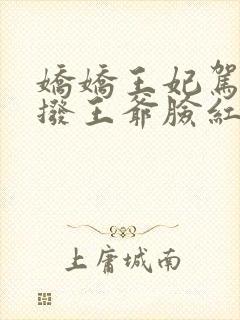 嬌嬌王妃駕
撥王爺臉紅
上庸城南